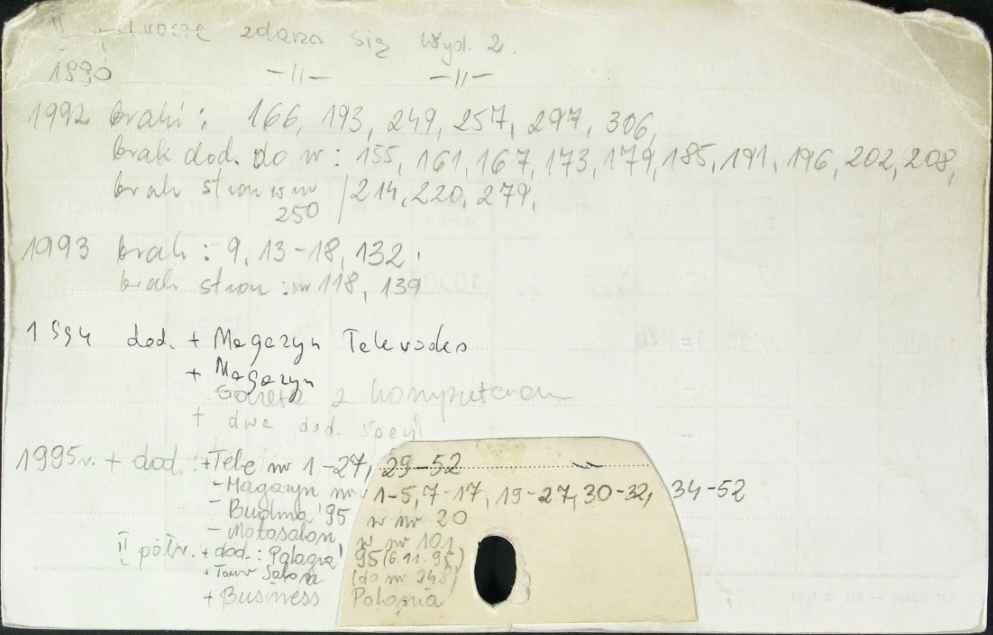 zdarza się wyd. 2.
1990 -II- -II-
1992 braki: 166, 193, 249, 257, 297, 306,
brak dod. do nr: 155, 161, 167, 173, 179, 185, 191, 196, 202, 208,
brak stron w nr 250 / 214, 220, 279,
1993 brak: 9, 13-18, 132.
brak stron: nr 118, 139
1994 dod. + Magazyn Telewideo
+ Magazyn
Gazeta z komputerem
+ dwa dod. specj.
1995r. + dod.: +Tele nr 1-27, 29-52
- Magazyn nr 1-5, 7-17, 19-27, 30-32, 34-52
- Budma '95 w nr 20
- Motosalon w nr 101
II półr. + dod.: Polagra' 95 (6.11.95)
Salon (do nr 248)
+ Business Polonia